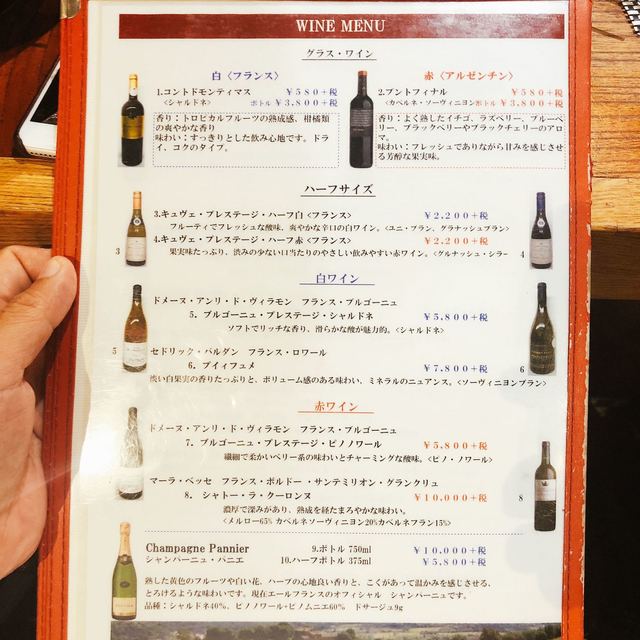 WINE MENU
グラス・ワイン
白〈フランス〉
1.コントドモンティマス ￥580+税
<シャルドネ> ボトル ￥3,800+税
香り：トロピカルフルーツの熟成感、柑橘類
の爽やかな香り
味わい：すっきりとした飲み心地です。ドラ
イ、コクのタイプ。
赤〈アルゼンチン〉
2.プントフィナル ￥580+税
<カベルネ・ソーヴィニヨン ボトル ￥3,800+税
香り：よく熟したイチゴ、ラズベリー、ブルーベ
リー、ブラックベリーやブラックチェリーのアロ
マ。
味わい：フレッシュでありながら甘みを感じさせ
る芳醇な果実味。
ハーフサイズ
3.キュヴェ・プレステージ・ハーフ白<フランス> ￥2,200+税
フルーティでフレッシュな酸味、爽やかな辛口の白ワイン。<ユニ・ブラン、グラナッシュブラン>
4.キュヴェ・プレステージ・ハーフ赤<フランス> ￥2,200+税
果実味たっぷり、渋みの少ない口当たりのやさしい飲みやすい赤ワイン。<グルナッシュ・シラー
3
4
白ワイン
ドメーヌ・アンリ・ド・ヴィラモン フランス・ブルゴーニュ
5. ブルゴーニュ・プレステージ・シャルドネ ￥5,800+税
ソフトでリッチな香り、滑らかな酸が魅力的。<シャルドネ>
5
セドリック・バルダン フランス・ロワール
6. プイィフュメ ￥7,800+税
6
渋い白果実の香りたっぷりと、ボリューム感のある味わい、ミネラルのニュアンス。<ソーヴィニヨンブラン>
赤ワイン
ドメーヌ・アンリ・ド・ヴィラモン フランス・ブルゴーニュ
7. ブルゴーニュ・プレステージ・ピノノワール ￥5,800+税
繊細で柔かいベリー系の味わいとチャーミングな酸味。<ピノ・ノワール>
マーラ・ベッセ フランス・ボルドー・サンテミリオン・グランクリュ
8. シャトー・ラ・クーロンヌ ￥10,000+税
8
濃厚で深みがあり、熟成を経たまろやかな味わい。
<メルロー65% カベルネソーヴィニヨン20%カベルネフラン15%>
Champagne Pannier 9.ボトル 750ml ￥10,000+税
シャンパーニュ・パニエ 10.ハーフボトル 375ml ￥5,800+税
熟した黄色のフルーツや白い花、ハーブの心地良い香りと、こくがあって温かみを感じさせる、
とろけるような味わいです。現在エールフランスのオフィシャル シャンパーニュです。
品種：シャルドネ40%、ピノノワール・ピノムニエ60% ドサージュ9g